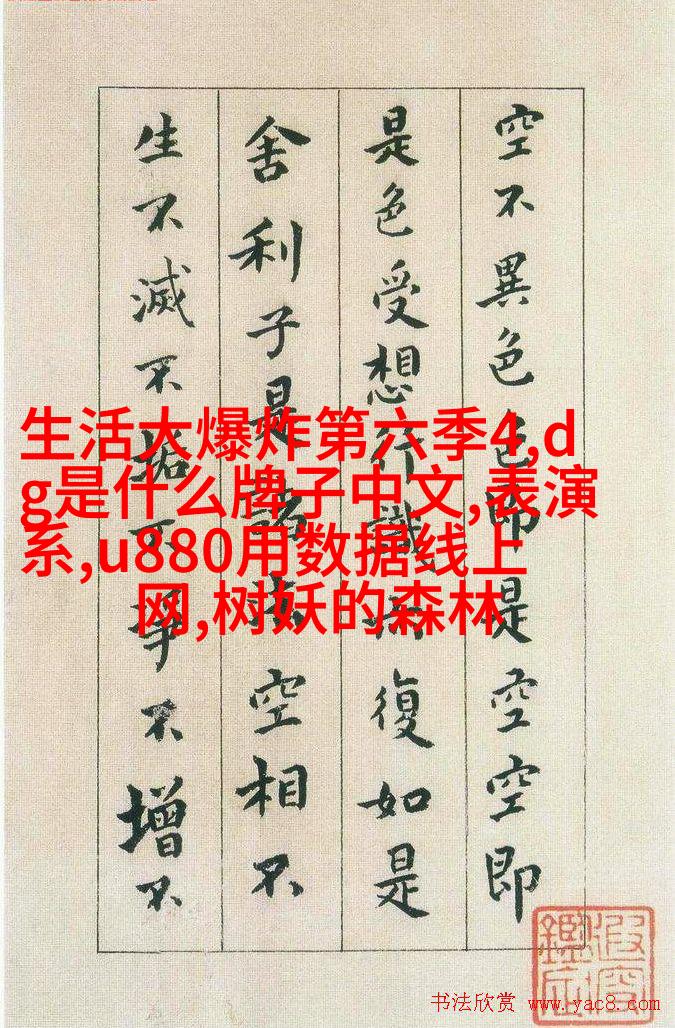 空不異色色即是空空即
是色受想行識亦復如是
舍利子是諸法空相不
生不滅不垢不淨不增不
生活大爆炸第六季4,d
g是什么牌子中文,表演
系,u880用数据线上
网,树妖的森林
书法欣赏 www.yac8.com